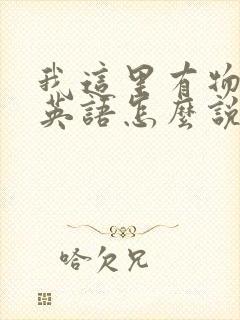 我這里有物
英語怎麼說
哈欠兄